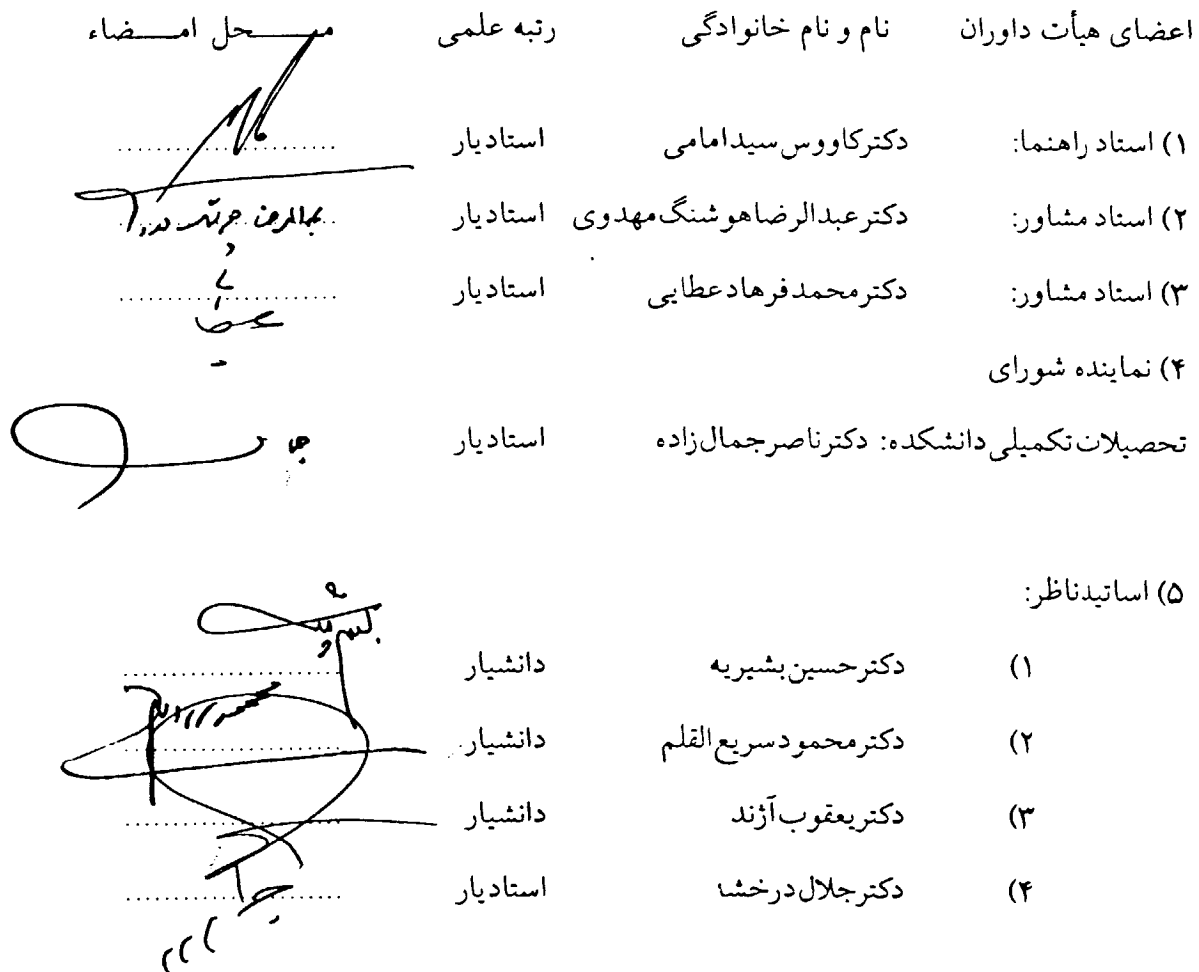 اعضای هیأت داوران نام و نام خانوادگی رتبه علمی محل امضاء
۱) استاد راهنما: دکترکاووس سیدامامی استادیار
۲) استاد مشاور: دکترعبدالرضاهوشنگ مهدوی استادیار
۳) استاد مشاور: دکترمحمدفرهادعطایی استادیار
۴) نماینده شورای
تحصیلات تکمیلی دانشکده: دکترناصرجمال زاده استادیار
۵) اساتیدناظر:
۱) دکترحسین بشیریه دانشیار
۲) دکترمحمودسریع القلم دانشیار
۳) دکتریعقوب آژند دانشیار
۴) دکترجلال درخشا استادیار